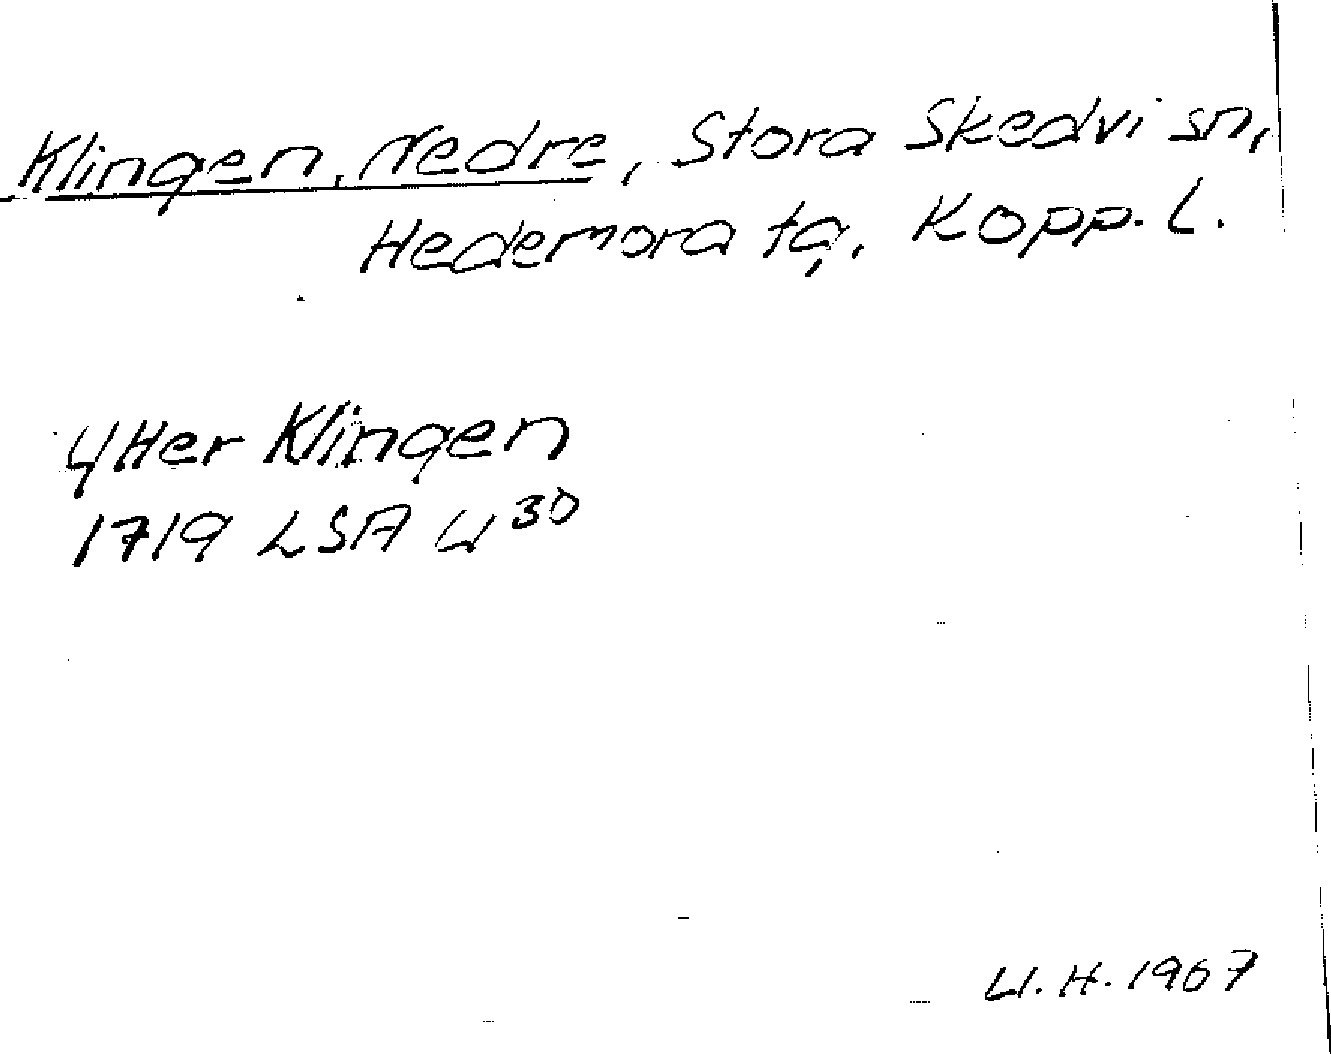 Klingen, Nedre, Stora Skedvi sn,
Hedemora tg, Kopp. L.
YHer Klingen
1719 LSA U 30
U.H. 1967